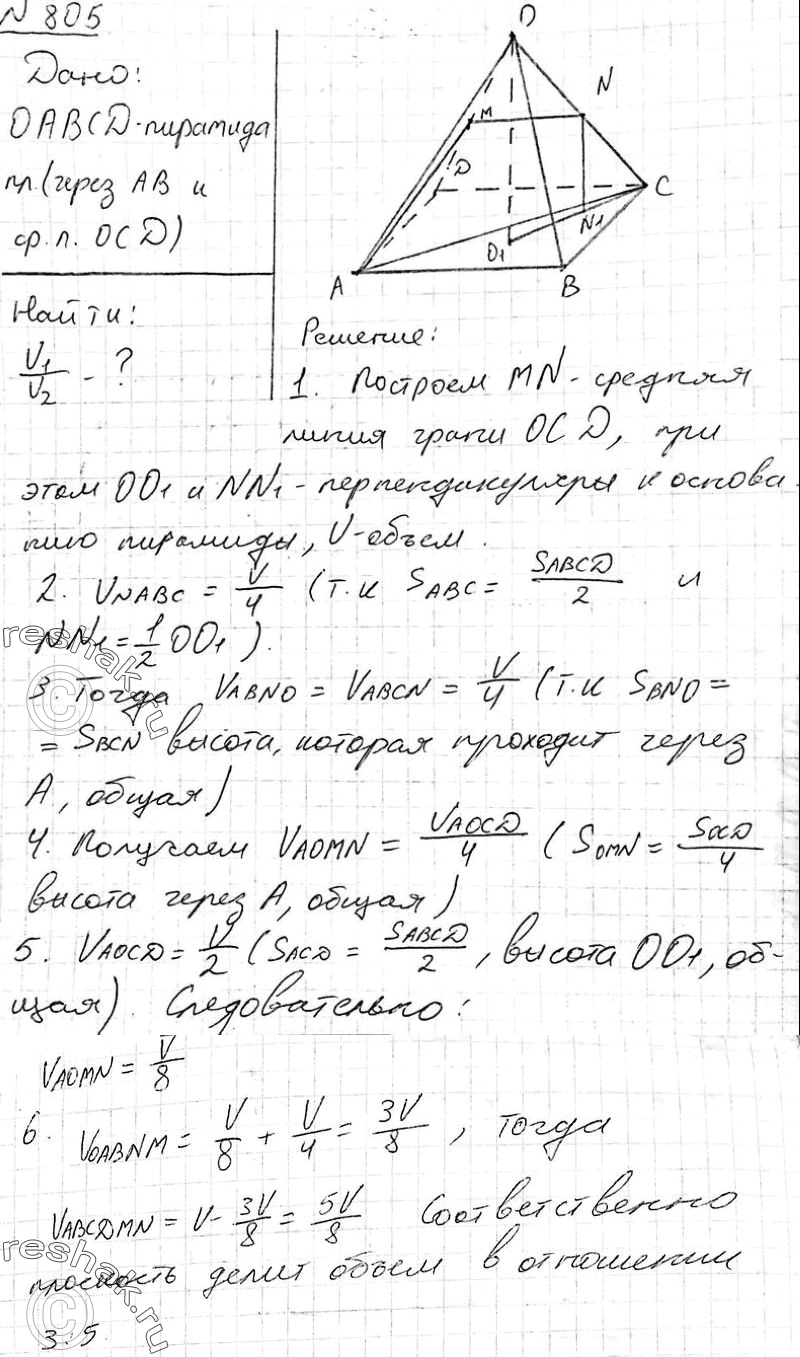 N 805
Дано:
OABCD-пирамида
пл.(через AB и
ср.л. OCD)
Найти:
V1/V2 - ?
O
M
N
D
C
O1
N1
A
B
Решение:
1. Построем MN-средняя
линия грани OCD, при
этом OO1 и NN1-перпендикуляры к основа
нию пирамиды, V-объем.
2. VNABC = V/4 (т.к SABC = SABCD/2 и
NN1 = 1/2 OO1).
3 Тогда VABNO = VABCN = V/4 (т.к SBNO =
= SBCN высота, которая проходит через
A, общая)
4. Получаем VAOMN = VAOCD/4 (SOMN = SOCD/4
высота через A, общая)
5. VAOCD = V/2 (SACD = SABCD/2, высота OO1, об-
щая). Следовательно:
VAOMN = V/8
6. VOABNM = V/8 + V/4 = 3V/8, тогда
VABCDMN = V - 3V/8 = 5V/8 Соответственно
плоскость делит объем в отношении
3:5
reshak.ru
reshak.ru